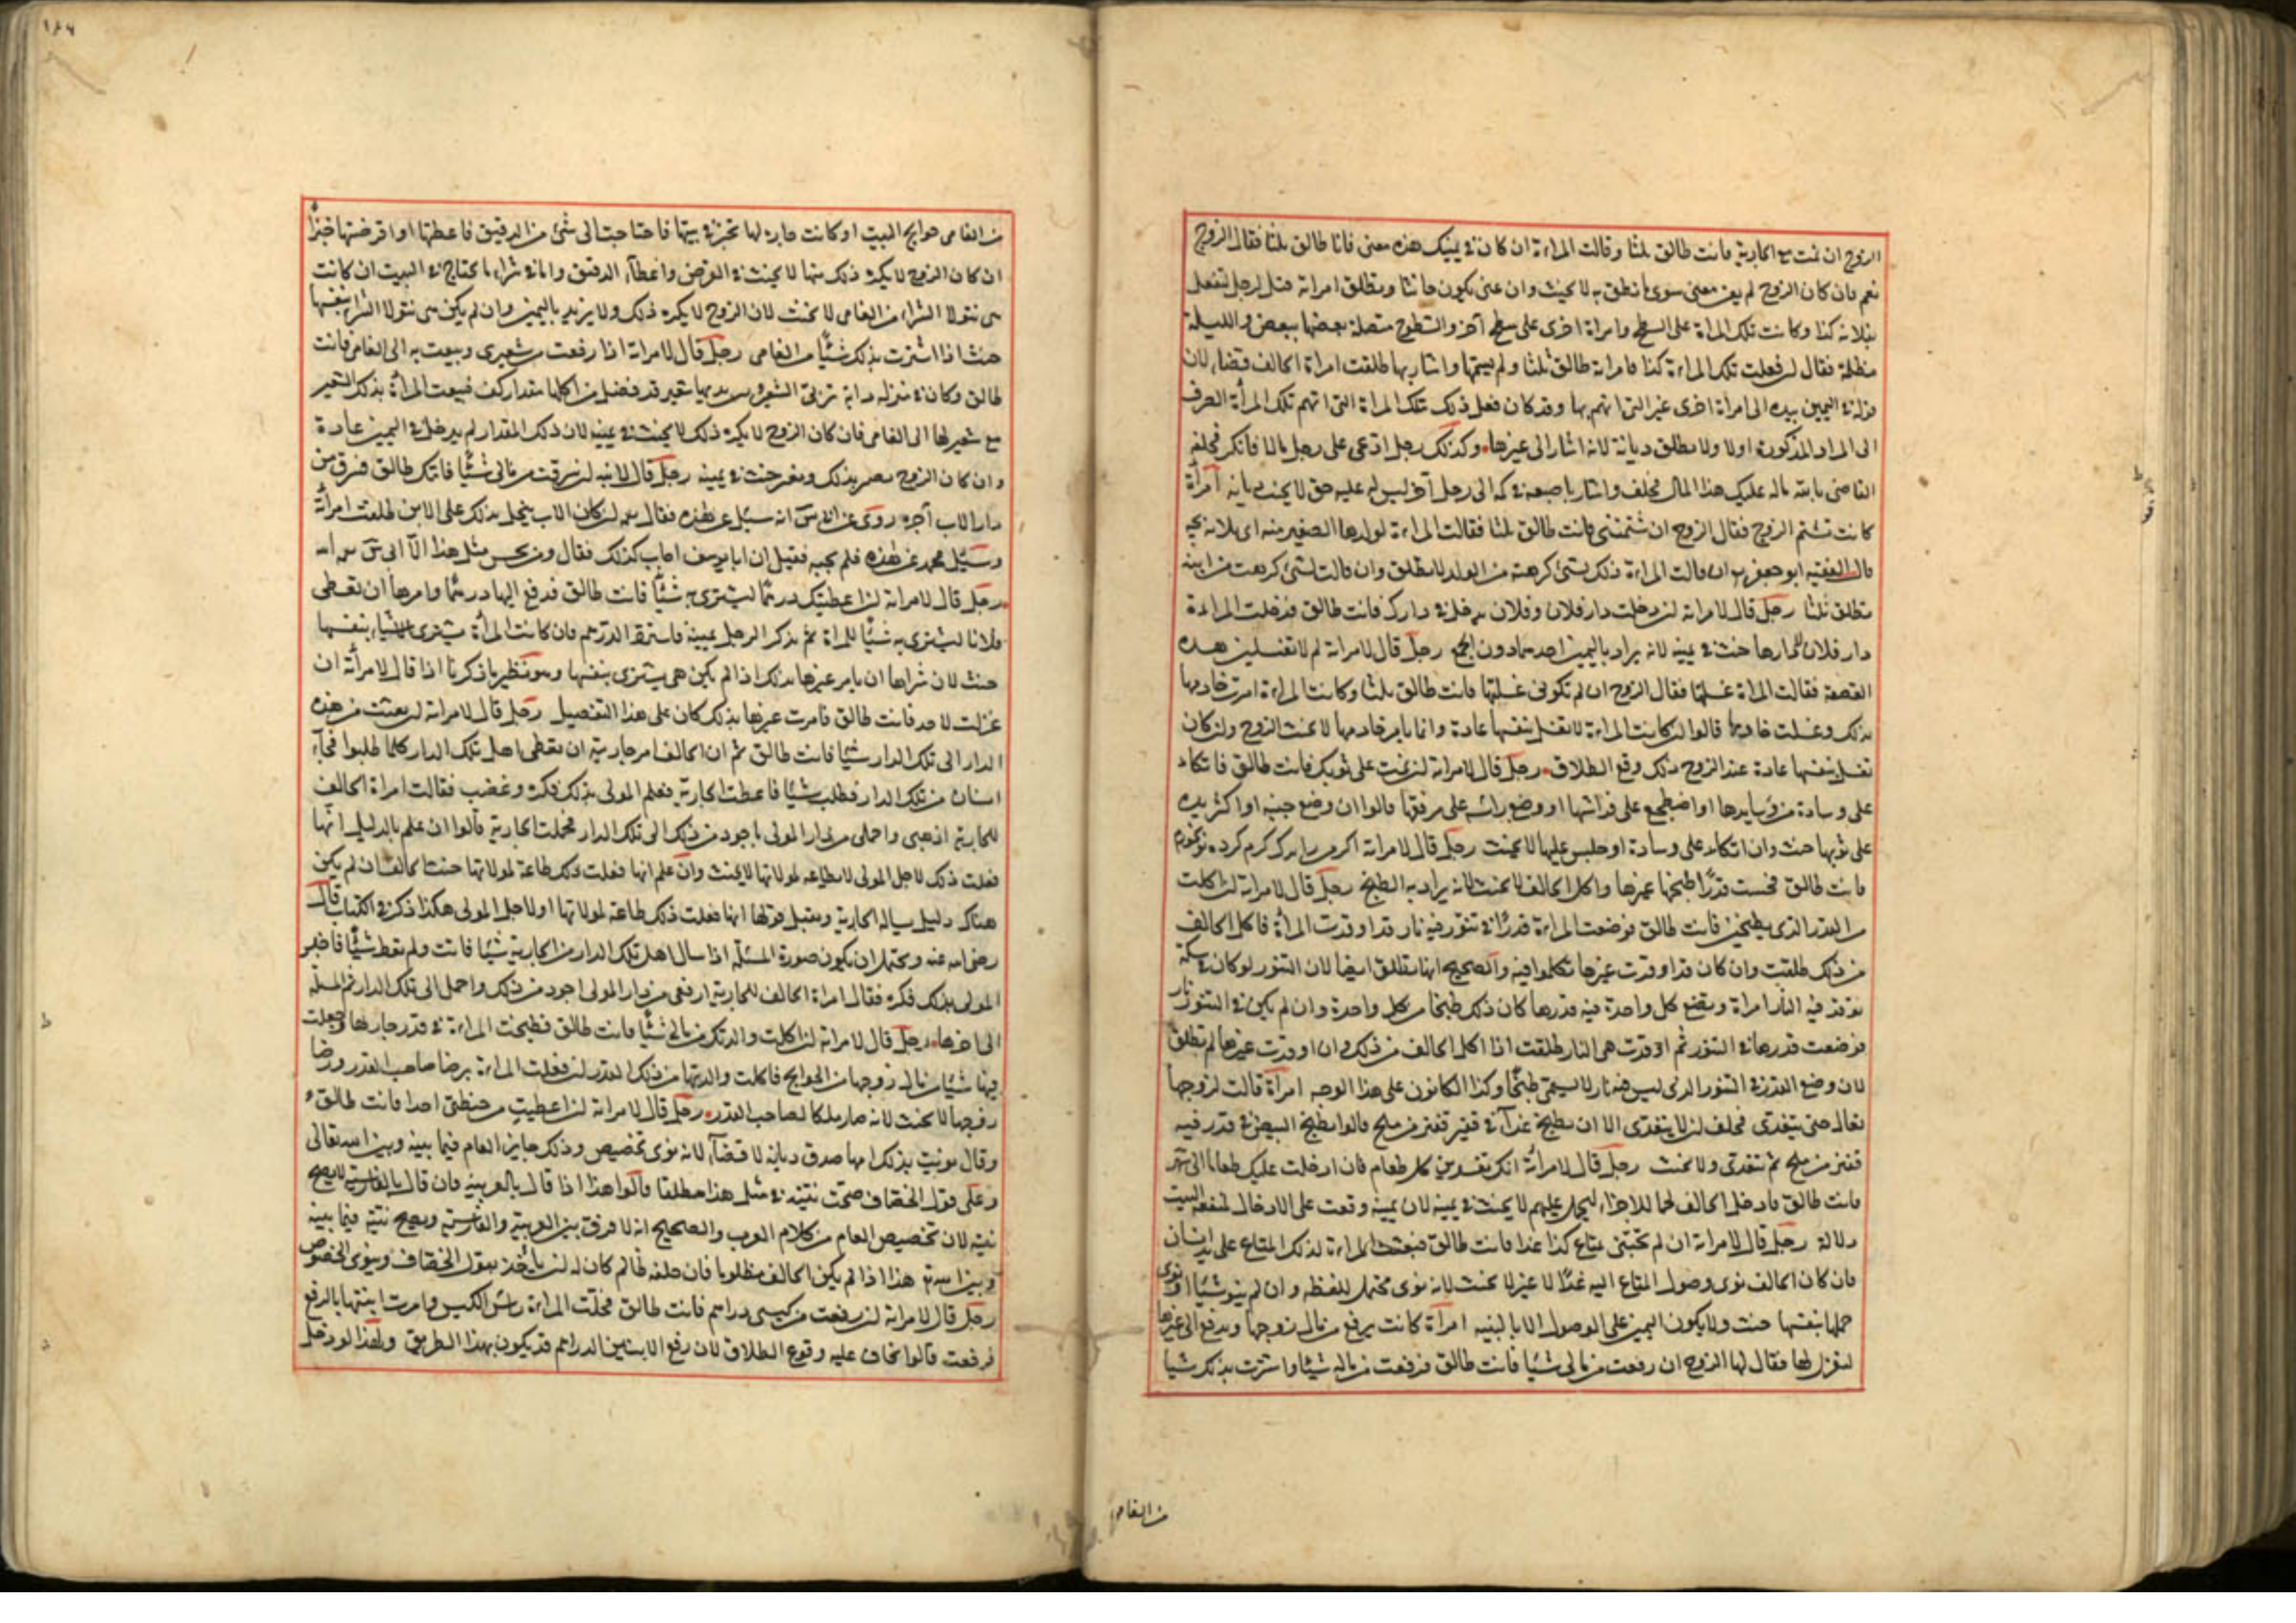 الزوج ان نمت مع الجارية فانت طالق ثلثا وقالت المراءة ان كان في يمينك هذه معنى فانا طالق ثلثا فقال الزوج
نعم فان كان الزوج لم يعن معنى سوى ما نطق به لا يحنث وان عنى يكون حانثا وتطلق امراته قيل لرجل لتفعل
بفلانة كذا وكانت تلك المراة على السطح وامراة اخرى على سطح آخر والسطوح متصلة بعضها ببعض والليلة
مظلمة فقال ان فعلت تلك المراءة كذا فامراته طالق ثلثا ولم يسمها واشار بها طلقت امراة الحالف قضاء لان
في اليمين بيده الى امراة اخرى غير التي اتهم بها وقد كان فعل ذلك تلك المراة التي اتهم تلك المرأة
الى المراة المذكورة اولا ولا تطلق ديانة لانه اشار الى غيرها وكذلك رجل ادعى على رجل مالا فانكر فحلفه
القاضي بالله ماله عليك هذا المال فحلف واشار باصبعه في كمه الى رجل آخر ليس له عليه حق لا يحنث ديانة امرأة
كانت تشتم الزوج فقال الزوج ان شتمتني فانت طالق ثلثا فقالت المراءة لولدها الصغير منه اي بلايه بچه
قال الفقيه ابو جعفر ان قالت المراءة ذلك لشئ كرهته من الولد لا تطلق وان قالت لشئ كرهت من ابيه
تطلق ثلثا رجل قال لامراته لن دخلت دار فلان وفلان يدخل في دارك فانت طالق فدخلت المراءة
دار فلان دارها حنث في يمينه لانه يراد باليمين احدهما دون الجمع رجل قال لامراته لم لا تغسلين هذه
القصعة فقالت المراة غسلتها فقال الزوج ان لم تكوني غسلتها فانت طالق ثلثا وكانت المراءة امرت خادمها
بذلك وغسلت خادمها قالوا ان كانت المراءة لا تغسل بنفسها عادة وانما يامر خادمها لا يحنث الزوج وان كان
تغسل بنفسها عادة عند الزوج ذلك وقع الطلاق رجل قال لامراته لن نمت على ثوبك فانت طالق فاتكاء
على وسادة من وسايدها او اضطجع على فراشها او وضع رأسه على مرفقتها قالوا ان وضع جنبه او اكثر بدنه
على ثوبها حنث وان اتكاء على وسادة او جلس عليها لا يحنث رجل قال لامراته اكر من كرم كرده تو خورم
فانت طالق فسخنت قدرا طبخها غيرها واكل الحالف لا يحنث لانه يراد به الطبخ رجل قال لامراته لن اكلت
من القدر الذي تطبخين فانت طالق فوضعت المراءة قدرا في تنور فيه نار قد اوقدت المرأة فاكل الحالف
من ذلك طلقت وان كان قد اوقدت غيرها تكلموا فيه والصحيح انها تطلق ايضا لان التنور لو كان في سكة
توقد فيه النار امراة وتضع كل واحدة فيه قدرها كان ذلك طبخا من كل واحدة وان لم يكن في التنور نار
فوضعت قدرها في التنور ثم اوقدت هي النار طلقت اذا اكل الحالف من ذلك وان اوقدت غيرها لم تطلق
لان وضع القدر في التنور الذي ليس فيه نار لا يسمى طبخا وكذا الكانون على هذا الوجه امرأة قالت لزوجها
تعال حتى تتغدى فحلف لن لا يتغدى الا ان يطبخ غداء في قفيز من ملح قالوا يطبخ البيض في قدر فيه
قفيز من ملح ثم تتغدى ولا يحنث رجل قال لامرأته انك تفسدين كل طعام فان ادخلت عليك طعاما الى شهر
فانت طالق فادخل الحالف لحما للاجزاء ليحمل عليهم لا يحنث في يمينه لان يمينه وقعت على الادخال لمنفعة البيت
دلالة رجل قال لامراته ان لم تجيئني بمتاع كذا غدا فانت طالق فبعثت المراءة لذلك المتاع على يد انسان
فان كان الحالف نوى وصول المتاع اليه غدا لا غير لا يحنث لانه نوى محتمل لفظه وان لم ينو شيئا او نوى
حملها بنفسها حنث ولا يكون اليمين على الوصول الا بالنية امرأة كانت يرفع من مال زوجها ويدفع الى غيرها
لتغزل لها فقال لها الزوج ان رفعت من مالي شيئا فانت طالق فرفعت من ماله شيئا واشترت بذلك شيئا
من الفامي
١٨٤
من الفامي حوايج البيت او كانت جارة لها تخبز في بيتها فاحتاجت الى شئ من الدقيق فاعطتها او اقرضتها خبزا
ان كان الزوج لا يكره ذلك منها لا يحنث في القرض واعطاء الدقيق واما في شراء ما يحتاج في البيت ان كانت
هي تتولا الشراء من الفامي لا يحنث لان الزوج لا يكره ذلك ولا يريد باليمين وان لم يكن هي تتولا الشراء بنفسها
حنث اذا اشترت بذلك شيئا من الفامي رجل قال لامراته اذا رفعت من شعيري وبعت به الى الفامي فانت
طالق وكان في منزله دابة شعير قد فضل من اكلها مقدار كف فبيعت المرأة بذلك الشعير
مع شعير لها الى الفامي فان كان الزوج لا يكره ذلك لا يحنث في يمينه لان ذلك المقدار لم يدخل في اليمين عادة
وان كان الزوج بذلك حنث في يمينه رجل قال لابنه لن سرقت من مالي شيئا فامك طالق فسرق من
دار الاب آجرة روى عن ابي يوسف انه سئل عن هذه فقال لن كان الاب يبخل بذلك على الابن طلقت امرأته
وسئل محمد عن هذه فلم يجبه فقيل ان ابا يوسف اجاب كذلك فقال ومن يحسن مثل هذا الا ابي يوسف رحمه الله
رجل قال لامراته لن اعطيتك درهما ليشتري به شيئا فانت طالق فدفع اليها درهما وامرها ان تعطي
فلانا ليشتري به شيئا للمراة ثم تذكر الرجل يمينه فاسترد الدرهم فان كانت المرأة يشتري شيئا بنفسها
حنث لان شراها ان يامر غيرها بذلك اذا لم يكن هي يشتري بنفسها وهو نظير ما ذكرنا اذا قال لامرأته ان
غزلت لاحد فانت طالق فامرت غيرها بذلك كان على هذا التفصيل رجل قال لامراته لن بعثت من هذه
الدار الى تلك الدار شيئا فانت طالق ثم ان الحالف امر جاريته ان تعطي اهل تلك الدار كلما طلبوا فجاء
انسان من تلك الدار فطلب شيئا فاعطت الجارية فعلم المولى بذلك فكره وغضب فقالت امراة الحالف
للجارية اذهبي واحملي من دار المولى باجود من ذلك الى تلك الدار فحملت الجارية قالوا ان علم بالدليل انها
فعلت ذلك لاجل المولى لا بطاعة لمولاتها لا يحنث وان علم انها فعلت ذلك طاعة لمولاتها حنث الحالف وان لم يكن
هناك دليل سيال الجارية ويقبل قولها انها فعلت ذلك طاعة لمولاتها او لاجل المولى هكذا ذكر في الكتاب قال
رضي الله عنه ويحتمل ان يكون صورة المسئلة اذا سال اهل تلك الدار من الجارية شيئا فابت ولم تعط شيئا فاخبر
المولى بذلك فكره فقال امراة الحالف للجارية ارفعي من دار المولى اجود من ذلك واحملي الى تلك الدار ثم المسئلة
الى اخرها رجل قال لامراته لن اكلت والدتك من مالي شيئا فانت طالق فطبخت المراءة في قدر جارها وجعلت
فيها شيئا من مال زوجها من الحوايج فاكلت والدتها من ذلك القدر لن فعلت المراءة برضا صاحب القدر ورضا
زوجها لا يحنث لانه صار ملكا لصاحب القدر رجل قال لامراته لن اعطيت من حنطتي احدا فانت طالق
وقال نويت بذلك امها صدق ديانة لا قضاء لانه نوى تخصيص وذلك جايز العام فيما بينه وبين الله تعالى
وعلى قول الخصاف صحت نيته في مثل هذا مطلقا قالوا هذا اذا قال بالعربية فان قال بالفارسية لا يصح
نيته لان تخصيص العام من كلام العرب والصحيح انه لا فرق بين العربية والفارسية ويصح نيته فيما بينه
وبين الله هذا اذا لم يكن الحالف مظلوما فان حلفه ظالم كان له لن ياخذ بقول الخصاف وينوي الخصوص
رجل قال لامراته لن رفعت من كيسي دراهم فانت طالق فحلت المراءة رأس الكيس وامرت ابنتها بالرفع
فرفعت قالوا يخاف عليه وقوع الطلاق لان رفع الابنة الدراهم قد يكون بهذا الطريق ولهذا لو دخل